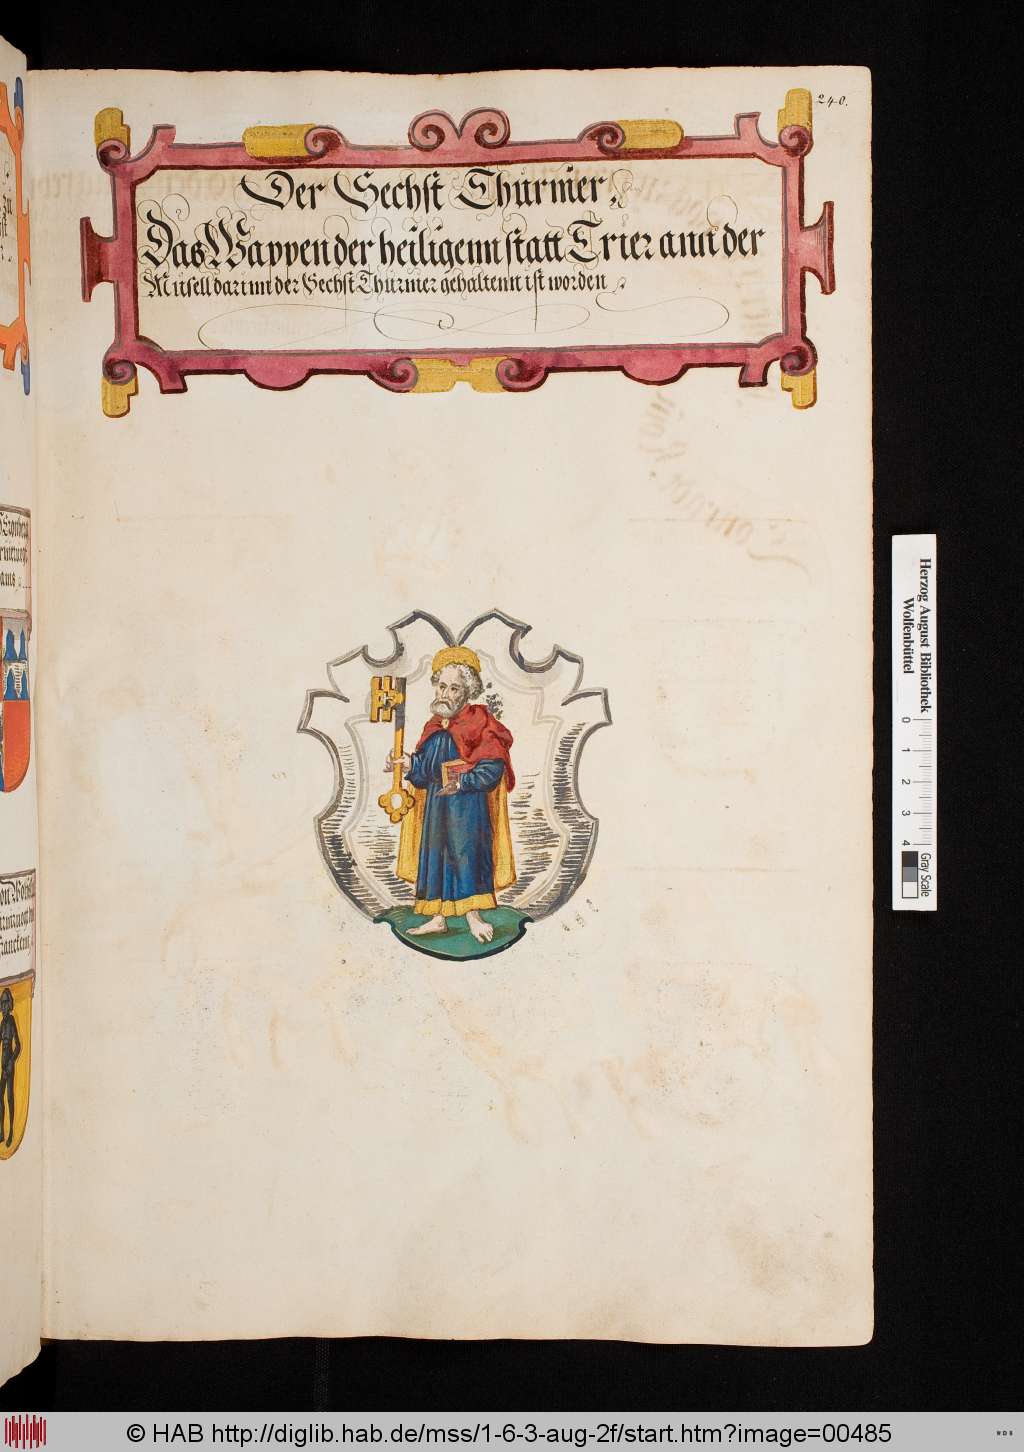 240.
Der Sechst Thurnier,
Das Wappen der heiligenn statt Trier ann der
Musell darinn der Sechst Thurnier gehaltenn ist worden
Herzog August Bibliothek
Wolfenbüttel
0 1 2 3 4
Gray Scale
© HAB http://diglib.hab.de/mss/1-6-3-aug-2f/start.htm?image=00485